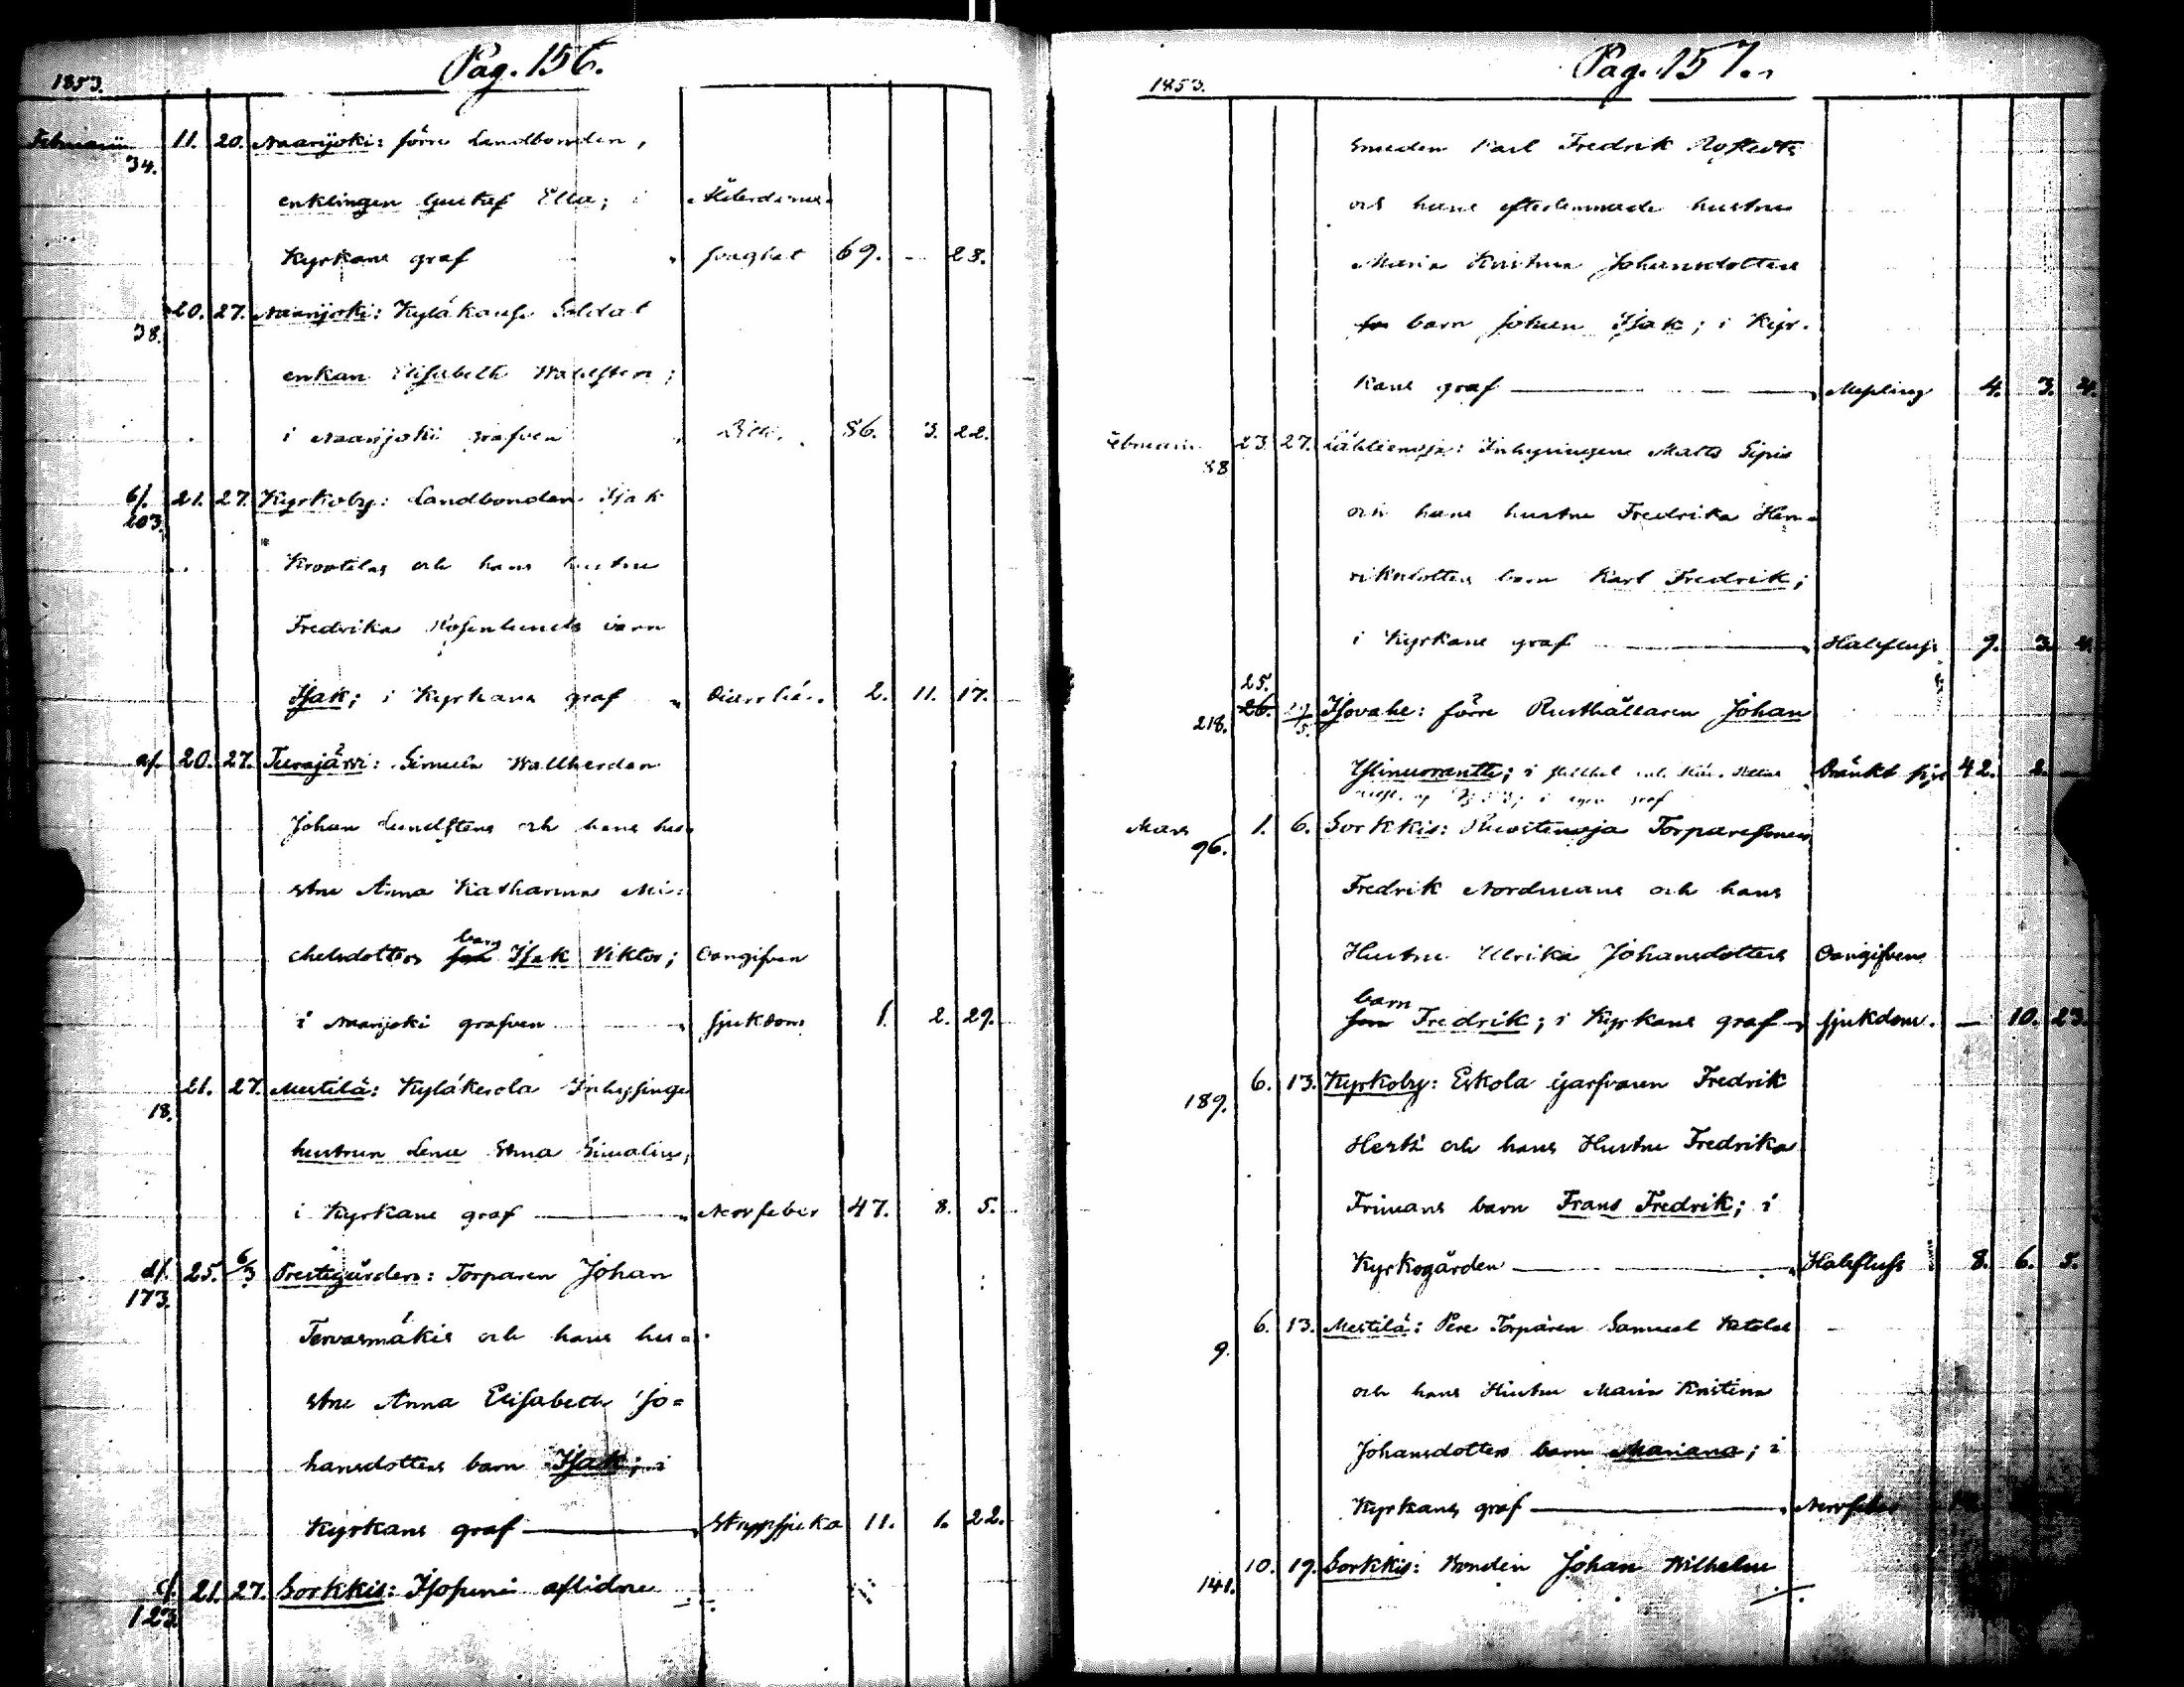 Pag. 156.
1853.
Februarii 11. 20. Naarijoki: förre Landbonden,
34.
enklingen Gustaf Ella; i Ålderdoms-
Kyrkans graf svaghet 69. - 23.
20. 27. Naarijoki: Kyläkaufs Soldat
38.
enkan Elisabeth
i Naarijoki grafven 86. 3. 22.
b/. 21. 27. Kyrkoby: Landbonden Isak
203.
Krootilas och hans hustru
Fredrika Rosenlunds barn
Isak; i Kyrkans graf 2. 11. 17.
a/. 20. 27. Turajärvi: Simula Wallherden
Johan Lundstens och hans hu-
stru Anna Katharina Mi-
chelsdotters barn Isak Viktor; Oangifven
i Naarijoki grafven sjukdom 1. 2. 29.
21. 27. Mestilä: Kyläkerola Inhysinge
18.
hustrun Lena Stina Simalin;
i Kyrkans graf Nervfeber 47. 8. 5.
d/. 25. 6/3 Prestegården: Torparen Johan
173.
Tervasmäkis och hans hu-
stru Anna Elisabeth Jo-
hansdotters barn Isak; i
Kyrkans graf Strypsjuka 11. 1. 22.
c/. 21. 27. Sorkkis: aflidne
123.
Pag. 157.
1853.
Smeden Karl Fredrik
och hans efterlemnade hustru
Maria Kristina Johansdotters
barn Johan Isak; i Kyr-
kans graf Messling 4. 3. 4.
Februarii 23. 27. Inhysingen Matts Sipis
88
och hans hustru Fredrika Hen-
riksdotters barn Karl Fredrik;
i Kyrkans graf Halsfluss 9. 3. 4.
25.
26. 27/5. Isovahe: förre Rusthållaren Johan
218.
i Dränkt sig 42. 2. -
i egen graf
Mars 1. 6. Sorkkis: Torparesonen
96.
Fredrik Nordmans och hans
Hustru Ulrika Johansdotters Oangifven
barn Fredrik; i Kyrkans graf sjukdom. - 10. 23.
6. 13. Kyrkoby: Eskola Garfvaren Fredrik
189.
och hans Hustru Fredrika
Frimans barn Frans Fredrik; i
Kyrkogården Halsfluss 8. 6. 5.
6. 13. Mestilä: Pere Torparen Samuel
9.
och hans Hustru Maria Kristina
Johansdotters barn Mariana; i
Kyrkans graf Nervfeber
10. 19. Sorkkis: Bonden Johan Wilhelm
141.